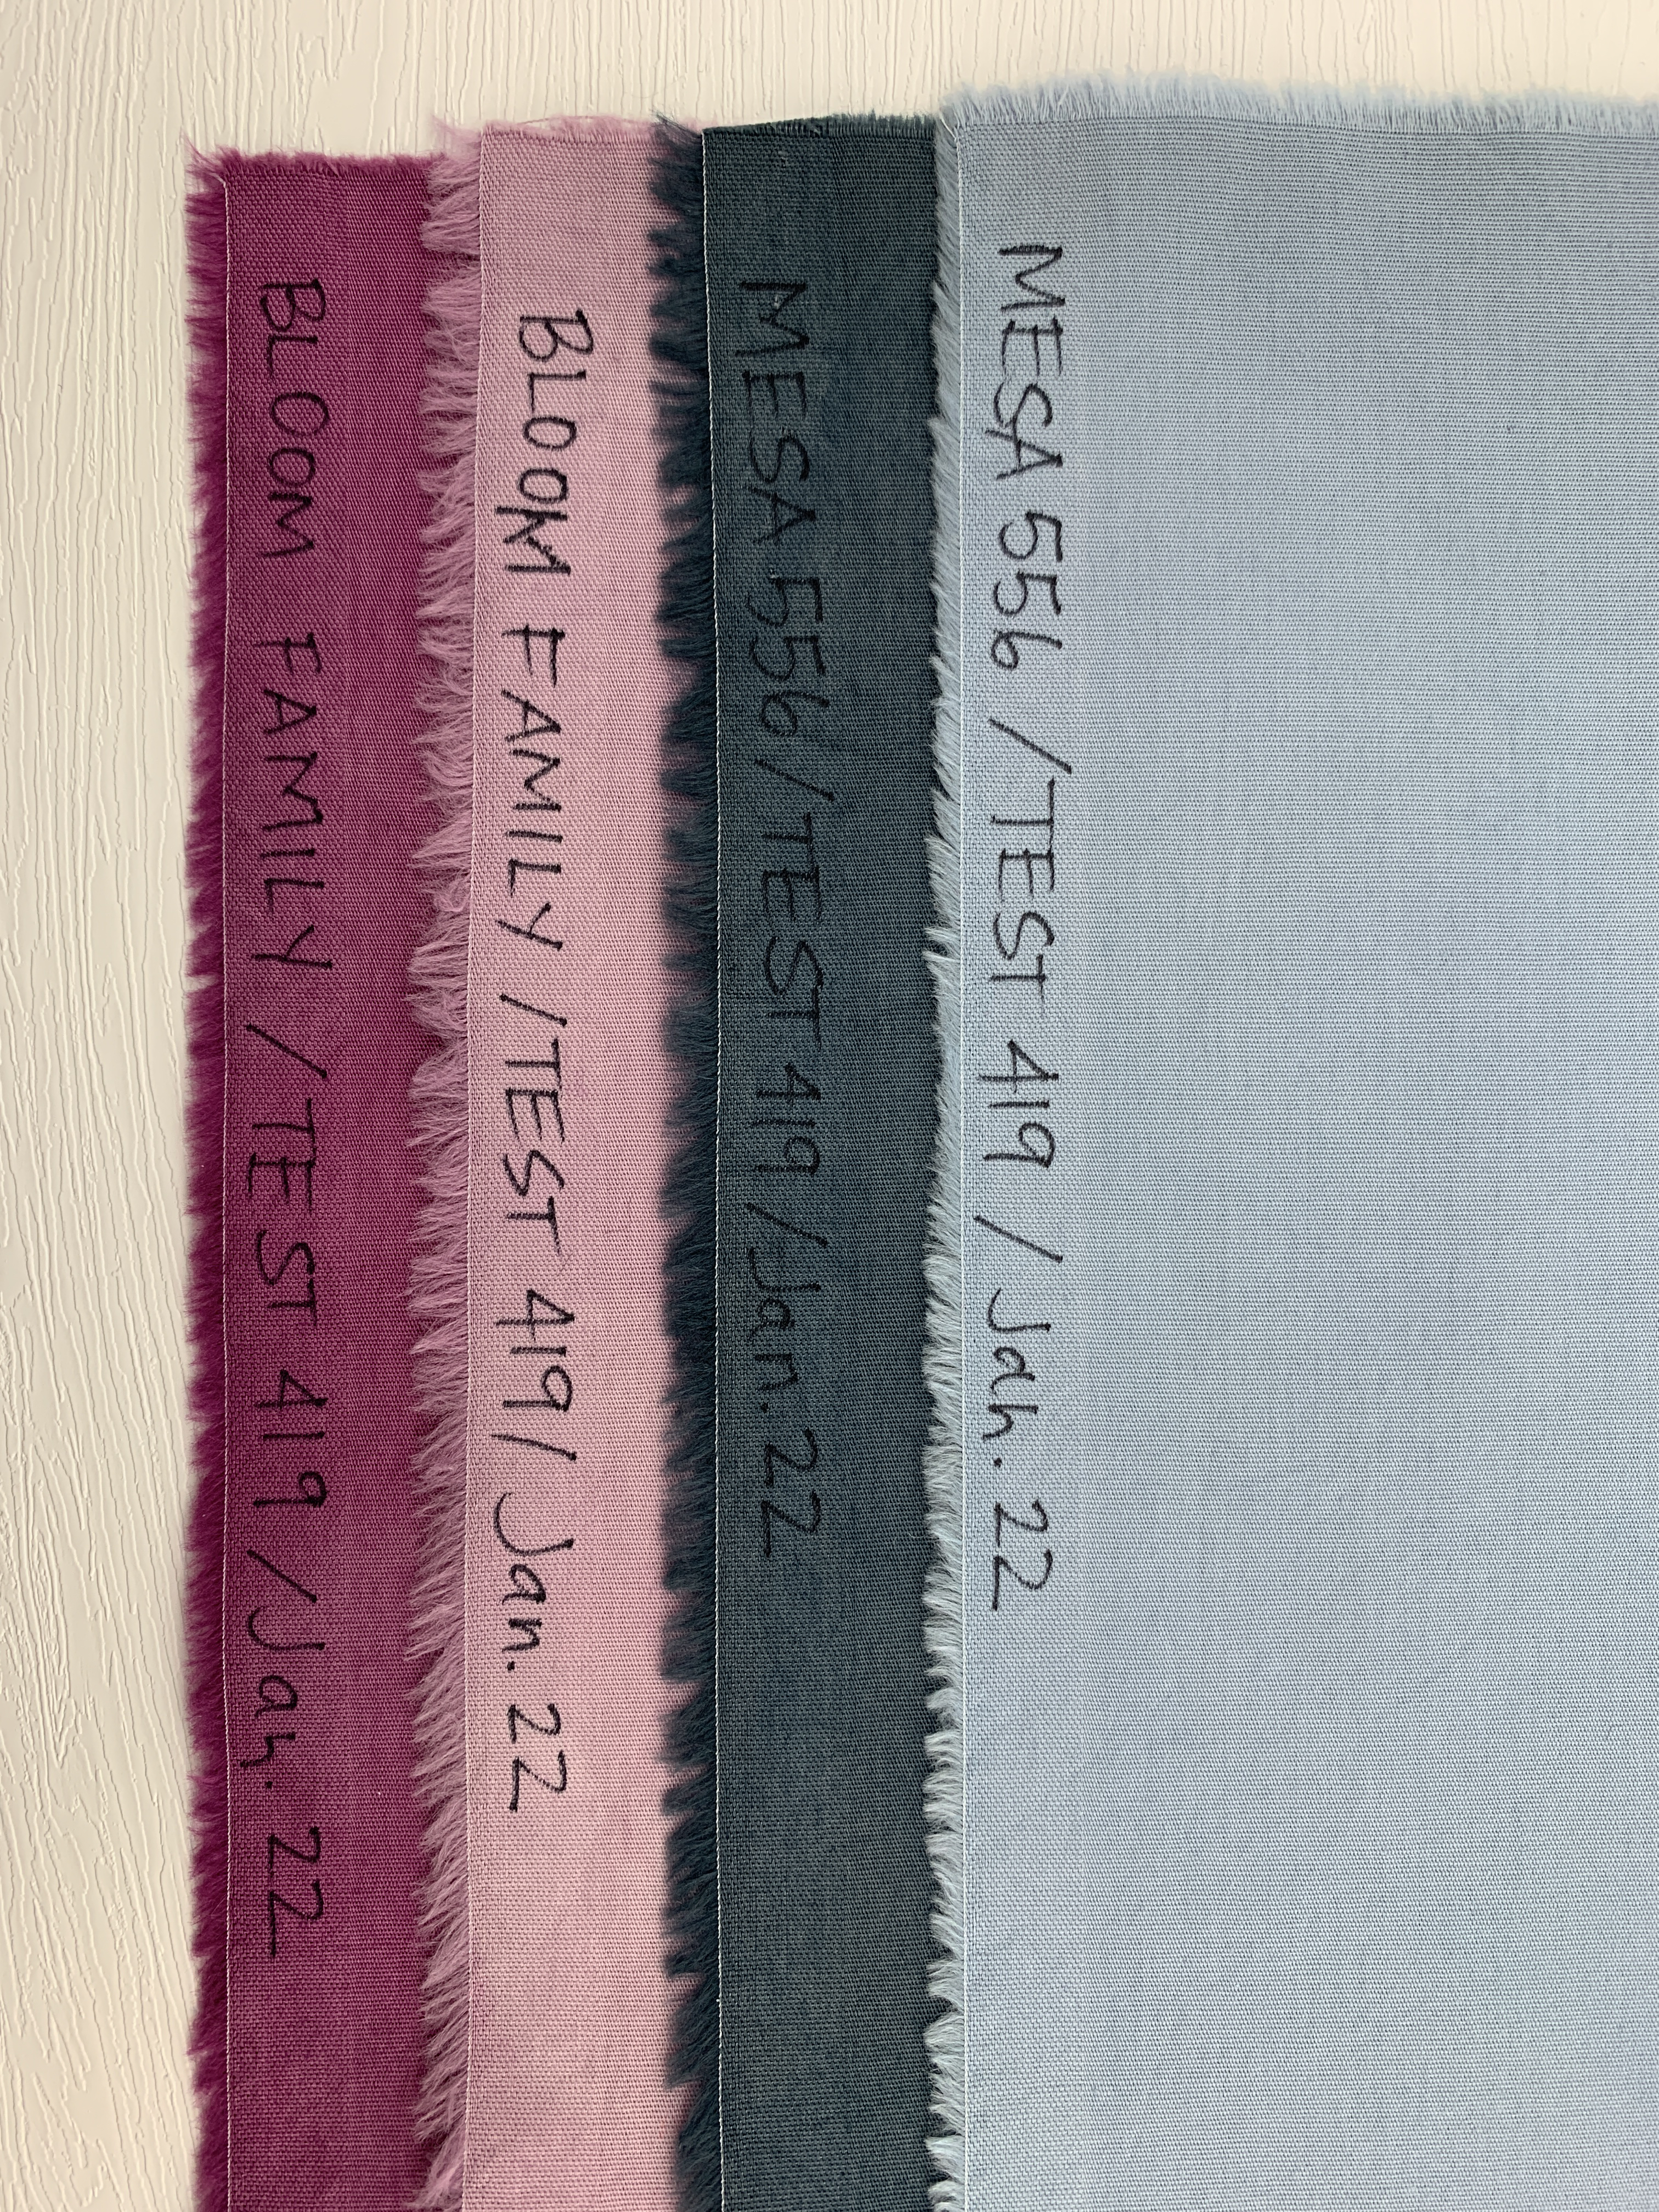 MESA 556 / TEST 419 / Jan. 22
MESA 556 / TEST 419 / Jan. 22
BLOOM FAMILY / TEST 419 / Jan. 22
BLOOM FAMILY / TEST 419 / Jan. 22